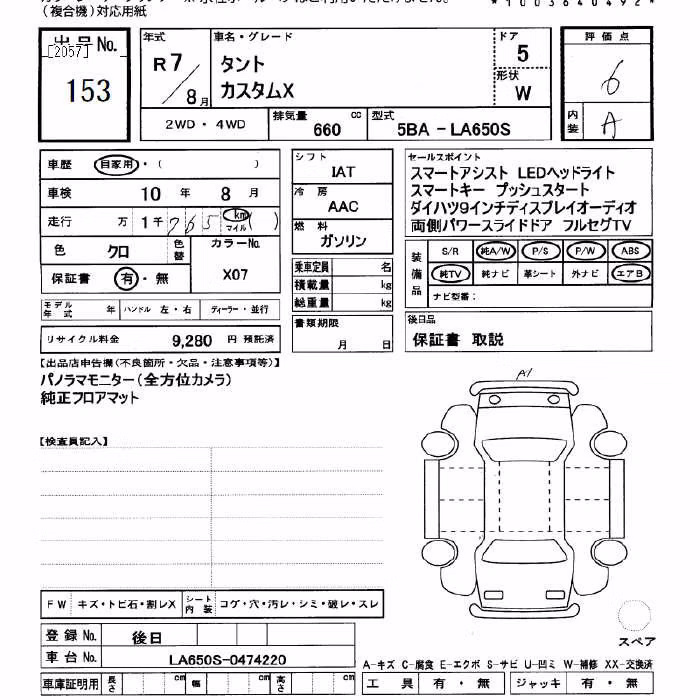 (複合機)対応用紙
*1003640492*
出品No.
[2057]
153
年式
R7/8月
車名・グレード
タント
カスタムX
ドア
5
形状
W
評価点
6
内装
A
2WD・4WD
排気量 660 cc
型式 5BA-LA650S
車歴 自家用・( )
車検 10 年 8 月
走行 万 1千765 km マイル ( )
色 クロ
色替
カラーNo.
X07
保証書 有・無
モデル年式 年
ハンドル 左・右
ディーラー・並行
リサイクル料金 9,280 円 預託済
シフト
IAT
冷房
AAC
燃料
ガソリン
乗車定員 名
積載量 kg
総重量 kg
書類期限
月 日
セールスポイント
スマートアシスト LEDヘッドライト
スマートキー プッシュスタート
ダイハツ9インチディスプレイオーディオ
両側パワースライドドア フルセグTV
装備品
S/R 純A/W P/S P/W ABS
純TV 純ナビ 革シート 外ナビ エアB
ナビ型番:
後日品
保証書 取説
【出品店申告欄(不良箇所・欠品・注意事項等)】
パノラマモニター(全方位カメラ)
純正フロアマット
【検査員記入】
A1
FW キズ・トビ石・割レX
シート内装 コゲ・穴・汚レ・シミ・破レ・スレ
登録No. 後日
車台No. LA650S-0474220
車庫証明用 長さ cm 幅 cm 高さ cm
スペア
A-キズ C-腐食 E-エクボ S-サビ U-凹ミ W-補修 XX-交換済
工具 有・無 ジャッキ 有・無